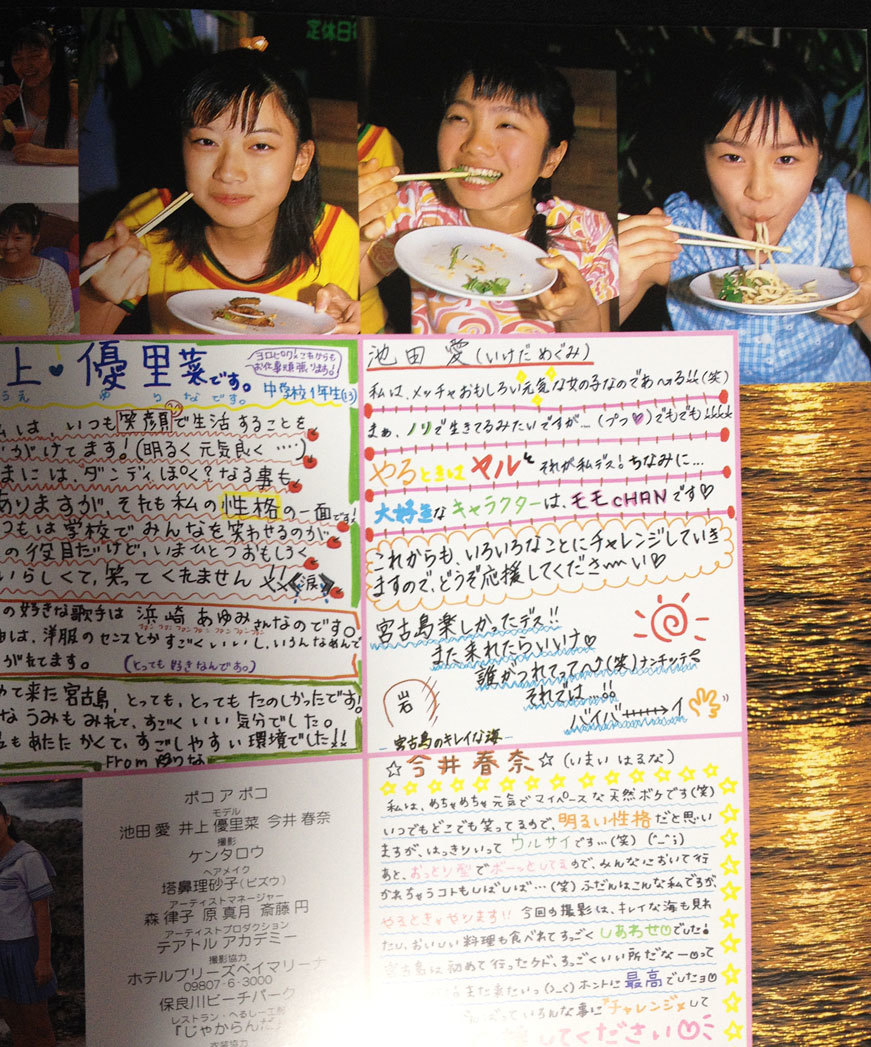 定休日
上♥優里菜です。
ヨロピク!!これからも
お仕事頑張ります!
中学校1年生(13)
いつも笑顔で生活することを
がけてます。(明るく元気良く…)
まには、ダンディぽくなる事も
ありますが、それも私の性格の一面です!
つもは学校でみんなを笑わせるのが
の役目だけど、いまひとつおもしろく
いらしくて、笑ってくれません!!(涙)
の好きな歌手は浜崎あゆみさんなのです。
は、洋服のセンスとかすごくいいし、いろんなめんで
がれてます。(とっても好きなんであ。)
めて来た宮古島、とっても、とってもたのしかったです!
なうみもみれて、すごくいい気分でした。
もあたたかくて、すごしやすい環境でした!!
From ゆりな
池田 愛(いけだ めぐみ)
私は、メッチャおもしろい元気な女の子なのであ〜る!!(笑)
まぁ、ノリで生きてるみたいですが…(プッ♡)でもでも
やるときはヤル それが私デス!ちなみに…
大好きなキャラクターは、モモCHANです♡
これからも、いろいろなことにチャレンジしていき
ますので、どうぞ応援してくださ〜い♡
宮古島楽しかったデス!!
また来れたらいいけ♡
誰かつれてって〜(笑)ナンチッテ
それでは…!!
バイバーイ
岩
宮古島のキレイな海
☆今井春奈☆(いまい はるな)
私は、めちゃめちゃ元気でマイペースな天然ボケです(笑)
いつでもどこでも笑ってるので、明るい性格だと思い
ますが、はっきりいってウルサイです…(笑)(^_^;)
あと、おっとり型でボーッとしてるので、みんなにおいて行
かれちゃうコトもしばしば…(笑)ふだんはこんな私ですが、
やるときゃやります!!今回の撮影は、キレイな海も見れ
たし、おいしい料理も食べれてすっごくしあわせでした!
宮古島は初めて行ったケド、すっごくいい所だなーって
また来たいっ(>_<)ホントに最高でした
っていろんな事にチャレンジして
してください
ポコ ア ポコ
モデル
池田 愛 井上 優里菜 今井 春奈
撮影
ケンタロウ
ヘアメイク
塔鼻理砂子(ビズウ)
アーティストマネージャー
森 律子 原 真月 斎藤 円
アーティストプロダクション
テアトル アカデミー
撮影協力
ホテルブリーズベイマリーナ
09807・6・3000
保良川ビーチパーク
レストラン・へるしー工房
『じゃからんだ』
衣装協力